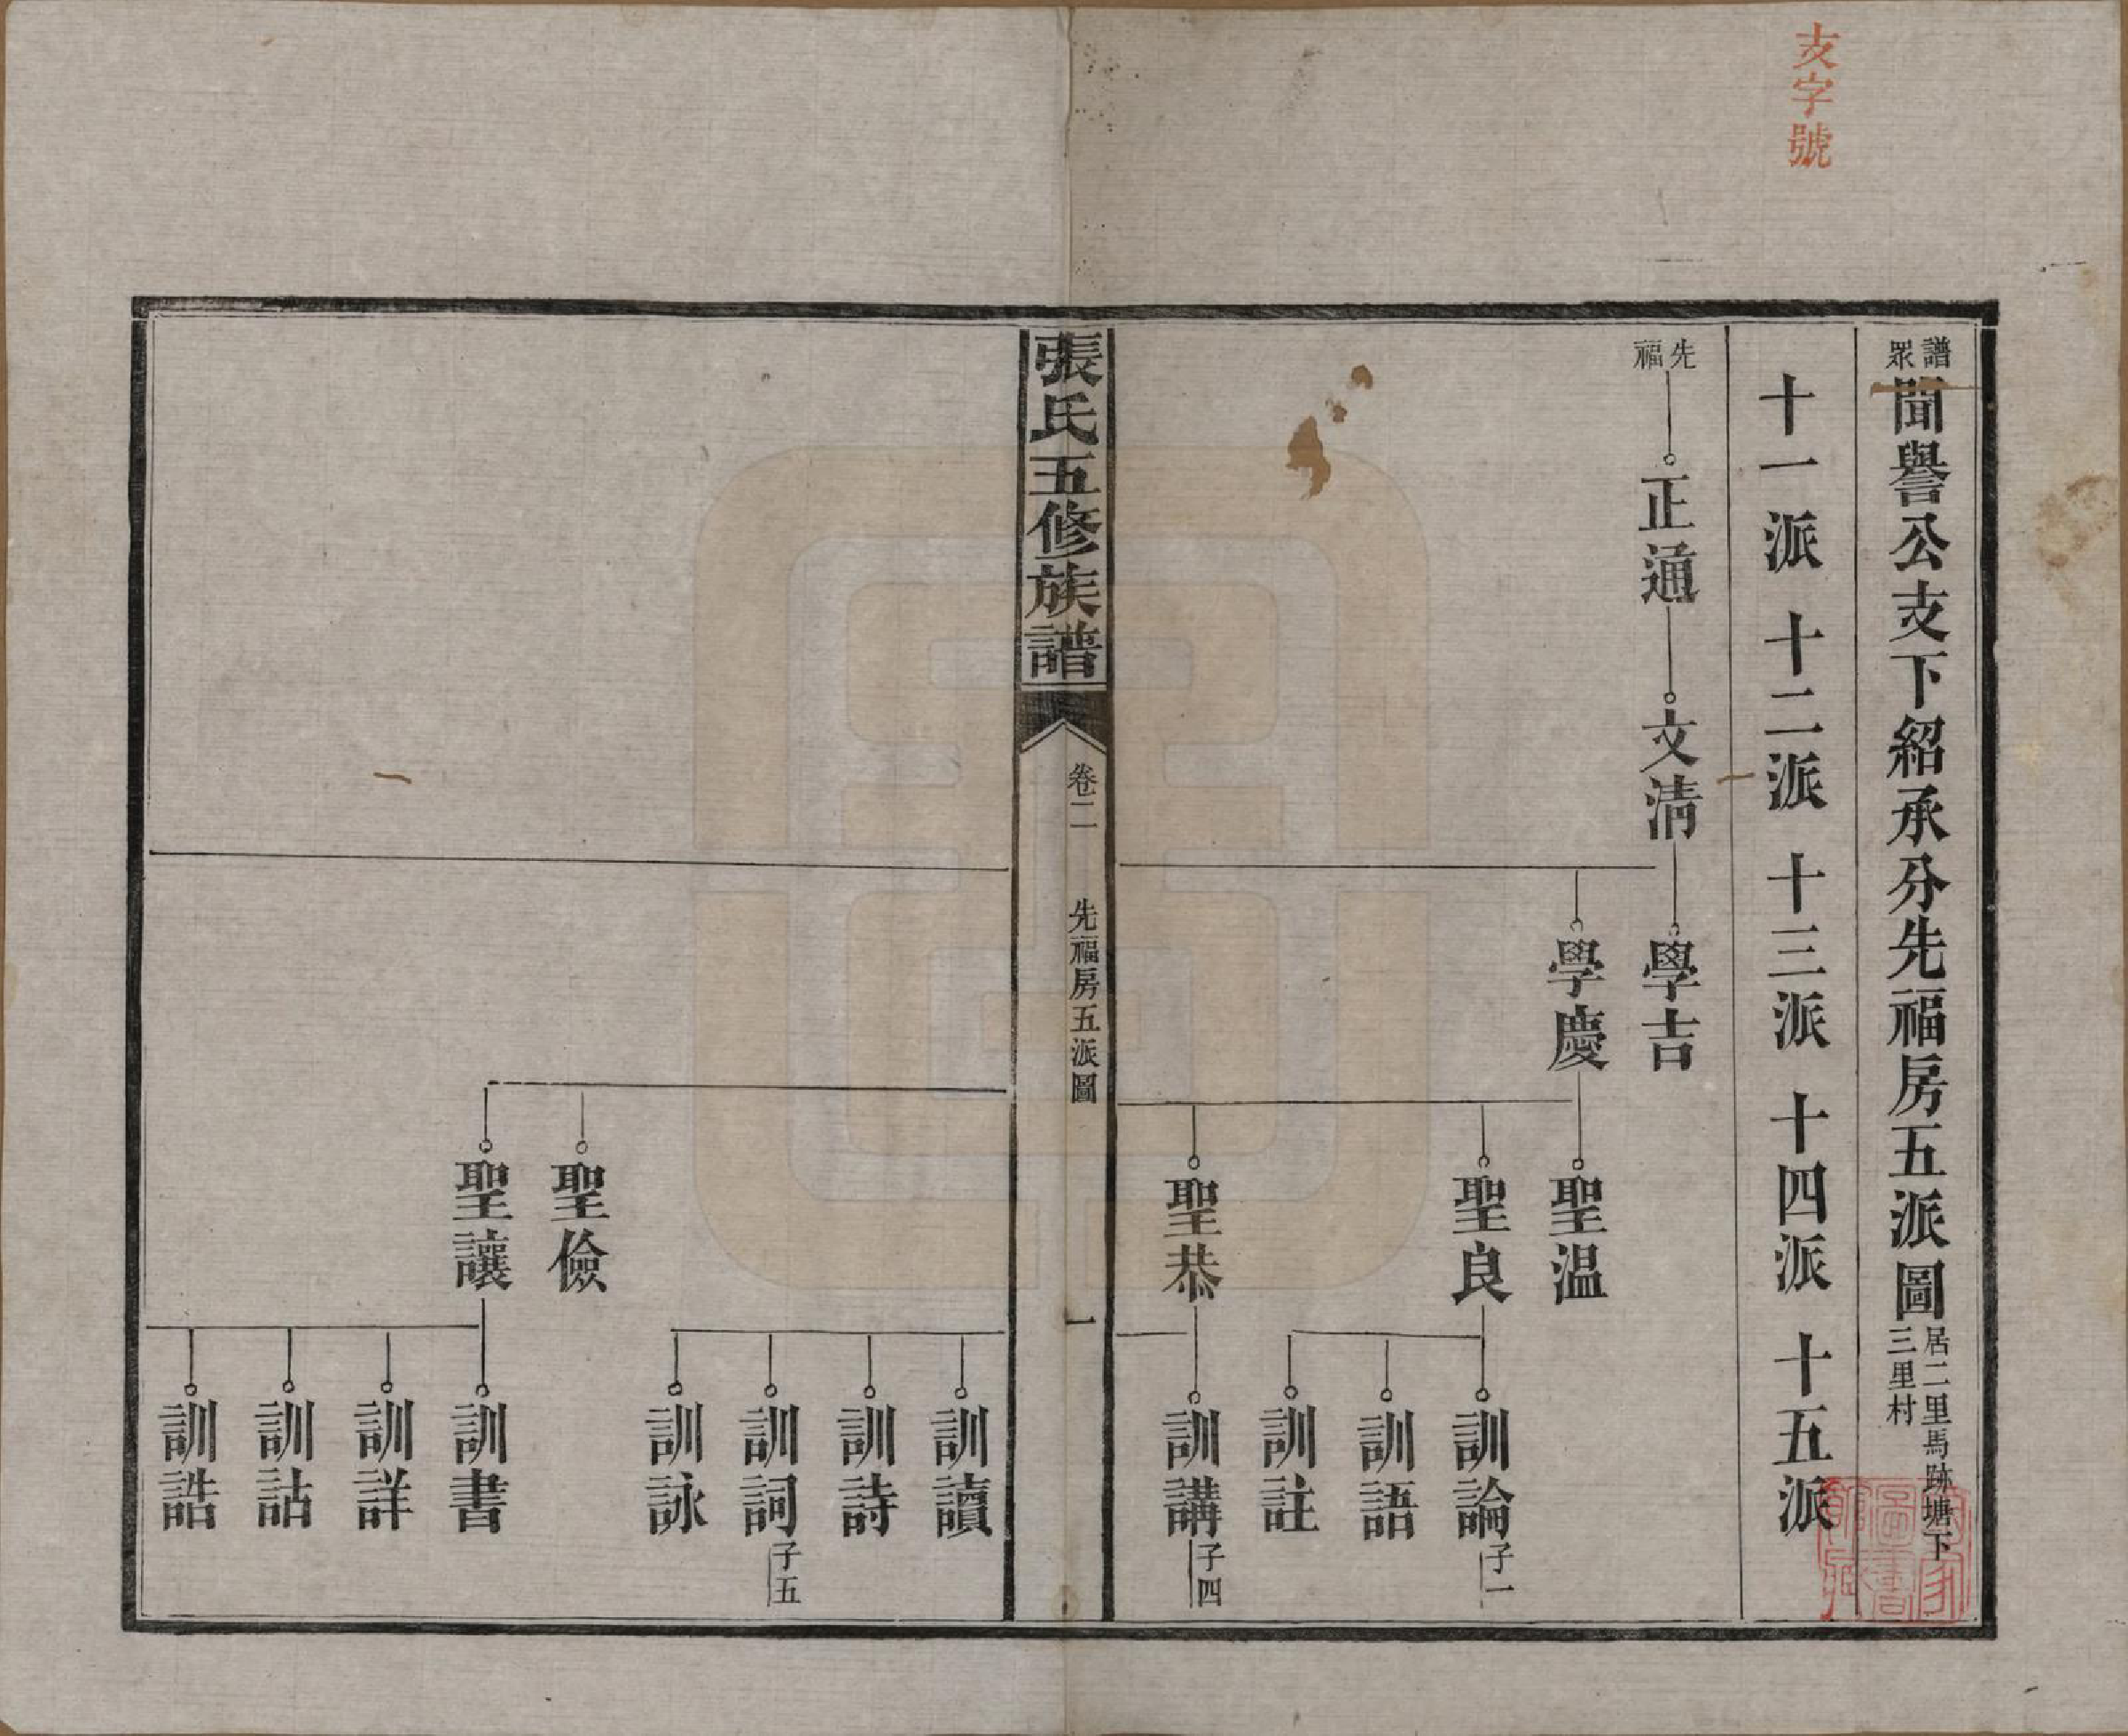 支字號
譜眾聞譽公支下紹承分先福房五派圖居二里馬跡塘下三里村
十一派 十二派 十三派 十四派 十五派
先福
正通
文清
學吉
學慶
聖温
聖良
訓論 子一
訓語
訓註
聖恭
訓講 子四
張氏五修族譜 卷二 先福房五派圖 一
訓讀
訓詩
訓詞 子五
訓詠
聖儉
聖讓
訓書
訓詳
訓詁
訓誥